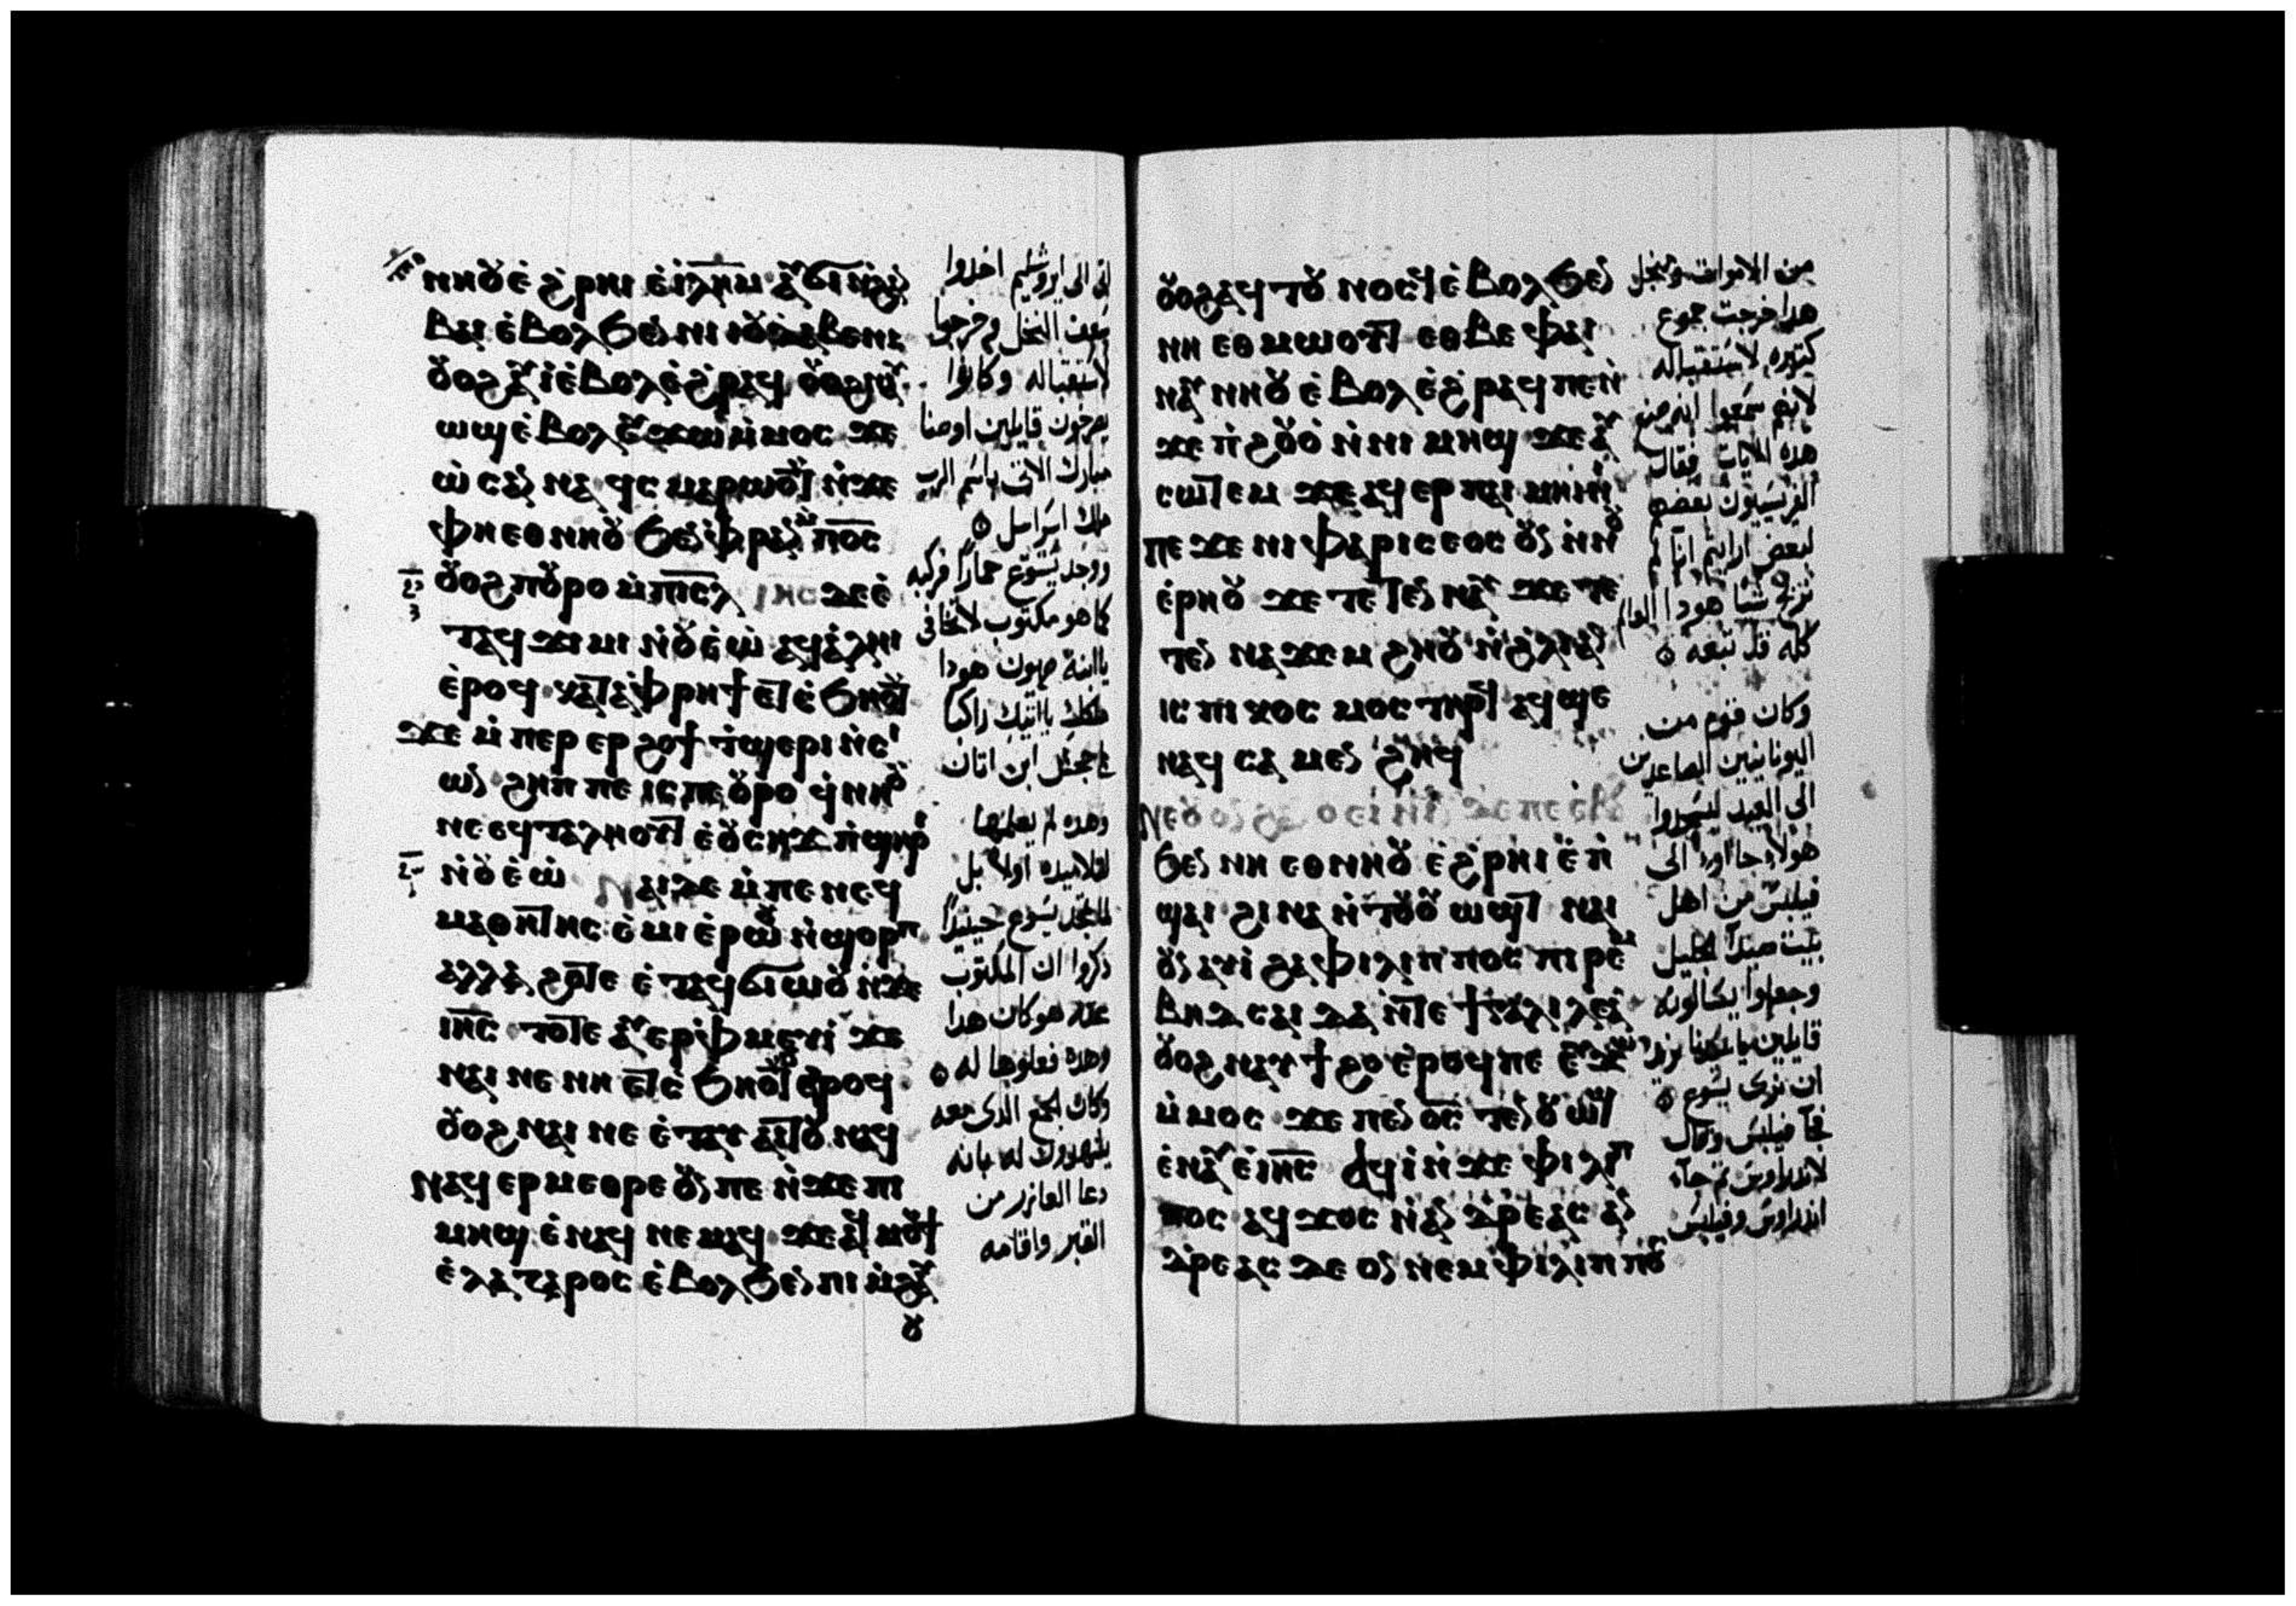 ⲛⲏⲟⲩ ⲉ̀ϩⲣⲏⲓ ⲉ̀ⲓⲗⲏⲙ ⲁⲩϭⲓ ⲛ̀ϩⲁⲛ
ⲃⲁⲓ ⲉ̀ⲃⲟⲗϧⲉⲛ ⲛⲓ
ⲟⲩⲟϩ ⲁⲩⲓ̀ ⲉ̀ⲃⲟⲗ ⲉ̀ϩⲣⲁϥ ⲟⲩⲟϩ ⲁⲩ
ⲱϣ ⲉ̀ⲃⲟⲗ ⲉⲩϫⲱ ⲙ̀ⲙⲟⲥ ϫⲉ
ⲱ̀ⲥⲁⲛⲛⲁ ϥⲥⲙⲁⲣⲱⲟⲩⲧ ⲛ̀ϫⲉ
ⲫⲏⲉⲑⲛⲏⲟⲩ ϧⲉⲛ ⲫⲣⲁⲛ ⲙ̀ⲡⲟ̅ⲥ̅
ⲟⲩⲟϩ ⲡⲟⲩⲣⲟ ⲙ̀ⲡⲓ̅ⲥ̅ⲗ̅ ⲓⲏⲥ ϫⲉ ⲉ̀
ⲧⲁϥϫⲓⲙⲓ ⲛ̀ⲟⲩⲉ̀ⲱ ⲁϥⲁ̀ⲗⲏⲓ
ⲉ̀ⲣⲟϥ ⲕⲁⲧⲁ ⲫⲣⲏϯ ⲉⲧⲥ̀ϧⲏⲟⲩⲧ
ϫⲉ ⲙ̀ⲡⲉⲣⲉⲣϩⲟϯ ⲧ̀ϣⲉⲣⲓ ⲛ̀ⲥⲓ
ⲱⲛ ϩⲏⲡⲡⲉ ⲓⲥ ⲡⲉⲟⲩⲣⲟ ϥ̀ⲛⲏⲟⲩ
ⲛⲉ ⲉϥⲧⲁⲗⲏⲟⲩⲧ ⲉ̀ⲟⲩⲥⲏϫ ⲡ̀ϣⲏⲣⲓ
ⲛ̀ⲟⲩⲉ̀ⲱ ⲛⲁⲓ ⲇⲉ ⲙ̀ⲡⲉ ⲛⲉϥ
ⲙⲁⲑⲏⲧⲏⲥ ⲉ̀ⲙⲓ ⲉ̀ⲣⲱⲟⲩ ⲛ̀ϣⲟⲣⲡ
ⲁⲗⲗⲁ ϩⲟⲧⲉ ⲉ̀ⲧⲁϥϭⲓⲱⲟⲩ ⲛ̀ϫⲉ
ⲓⲏ̅ⲥ̅ ⲧⲟⲧⲉ ⲁⲩⲉⲣⲫⲙⲉⲩⲓ̀ ϫⲉ
ⲛⲁⲓ ⲛⲉ ⲛⲏ ⲉⲧⲥ̀ϧⲏⲟⲩⲧ ⲉ̀ⲣⲟϥ
ⲟⲩⲟϩ ⲛⲁⲓ ⲛⲉ ⲉ̀ⲧⲁⲩⲁⲓⲧⲟⲩ ⲛⲁϥ
ⲛⲁϥⲉⲣⲙⲉⲑⲣⲉ ⲟⲩⲛ ⲡⲉ ⲛ̀ϫⲉ ⲡⲓ
ⲙⲏϣ ⲉ̀ⲛⲁϥ ⲛⲉⲙⲁϥ ϫⲉ ⲁϥⲙⲟⲩϯ
ⲉ̀ⲗⲁⲍⲁⲣⲟⲥ ⲉ̀ⲃⲟⲗϧⲉⲛ ⲡⲓⲙ̀ϩⲁⲩ
اتى الى ايروشليم اخدوا
سعف النخل وخرجوا
لاستقباله وكانوا
يصرخون قايلين اوصنا
مبارك الاتى باسم الرب
ملك اسرايل
ووجد يسوع حمارًا فركبه
كما هو مكتوب لا تخافى
يا ابنة صهيون هودا
ملكك ياتيك راكبا
جحش ابن اتان
وهده لم يعلمها
تلاميده اولا بل
لما تمجد يسوع حينيدًا
ذكروا ان المكتوب
عنه هو كان هدا
وهده فعلوها له
وكان الجمع الدى معه
يشهدون له بانه
دعا العازر من
القبر واقامه
ⲟⲩⲟϩ ⲁϥⲧⲟⲩⲛⲟⲥϥ ⲉ̀ⲃⲟⲗϧⲉⲛ
ⲛⲏ ⲉⲑⲙⲱⲟⲩⲧ ⲉⲑⲃⲉ ⲫⲁⲓ
ⲛⲁⲩⲛⲏⲟⲩ ⲉ̀ⲃⲟⲗ ⲉ̀ϩⲣⲁϥ ⲡⲉ ⲛ̀
ϫⲉ ⲡ̀ϩⲟⲩⲟ̀ ⲛ̀ⲛⲓⲙⲏϣ ϫⲉ ⲁⲩ
ⲥⲱⲧⲉⲙ ϫⲉ ⲁϥⲉⲣ ⲡⲁⲓⲙⲏⲓⲛⲓ
ⲡⲉϫⲉ ⲛⲓⲫⲁⲣⲓⲥⲉⲟⲥ ⲟⲩⲛ ⲛ̀ⲛⲟⲩ
ⲉ̀ⲣⲏⲟⲩ ϫⲉ ⲧⲉⲧⲉⲛⲛⲁⲩ ϫⲉ ⲧⲉ
ⲧⲉⲛ ⲛⲁϫⲉⲙ ϩⲏⲟⲩ ⲛ̀ϩ̀ⲗⲓ ⲁⲛ
ⲓⲥ ⲡⲓⲕⲟⲥⲙⲟⲥ ⲧⲏⲣϥ ⲁϥϣⲉ
ⲛⲁϥ ⲥⲁⲙⲉⲛϩⲏϥ
ⲛⲉ ⲟⲩⲟⲛ ϩⲁⲛⲟⲩⲉⲓⲛⲓⲛ
ϧⲉⲛ ⲛⲏ ⲉⲑⲛⲏⲟⲩ ⲉ̀ϩⲣⲏⲓ ⲉ̀ⲡ̀
ϣⲁⲓ ϩⲓⲛⲁ ⲛ̀ⲧⲟⲩⲟⲩⲱϣⲧ ⲛⲁⲓ
ⲟⲩⲛ ⲁⲩⲓ̀ ϩⲁ ⲫⲓⲗⲓⲡⲡⲟⲥ ⲡⲓⲣⲉⲙ
ⲃⲏⲇⲥⲁⲓⲇⲁ ⲛ̀ⲧⲉ ϯⲅⲁⲗⲓⲗⲉⲁ̀
ⲟⲩⲟϩ ⲛⲁⲩϯϩⲟ ⲉ̀ⲣⲟϥ ⲡⲉ ⲉⲩϫⲱ
ⲙ̀ⲙⲟⲥ ϫⲉ ⲡⲉⲛⲟ̅ⲥ̅ ⲧⲉⲛⲟⲩⲱϣ
ⲉ̀ⲛⲁⲩ ⲉ̀ⲓⲏ̅ⲥ̅ ⲁϥⲓ̀ ⲛ̀ϫⲉ ⲫⲓⲗⲓⲡ
ⲡⲟⲥ ⲁϥϫⲟⲥ ⲛ̀ⲁⲛⲇⲣⲉⲁⲥ ⲁⲛ
ⲇⲣⲉⲁⲥ ⲇⲉ ⲟⲛ ⲛⲉⲙ ⲫⲓⲗⲓⲡⲡⲟⲥ
من الاموات ومن اجل
هدا خرجت جموع
كتيره لاستقباله
لانهم سمعوا انه صنع
هده الايات فقال
الفريسيون بعضهم
لبعض ارايتم اننا لم
نربح شيا هودا العالم
كله قد تبعه
وكان قوم من
اليونانيين الصاعدين
الى العيد ليسجدوا
هولاء جاوا الى
فيلبس من اهل
بيت صيدا الجليل
وجعلوا يسالونه
قايلين يا سيدنا نريد
ان نرى يسوع
فجا فيلبس وقال
لاندراوس ثم جاء
اندراوس وفيلبس